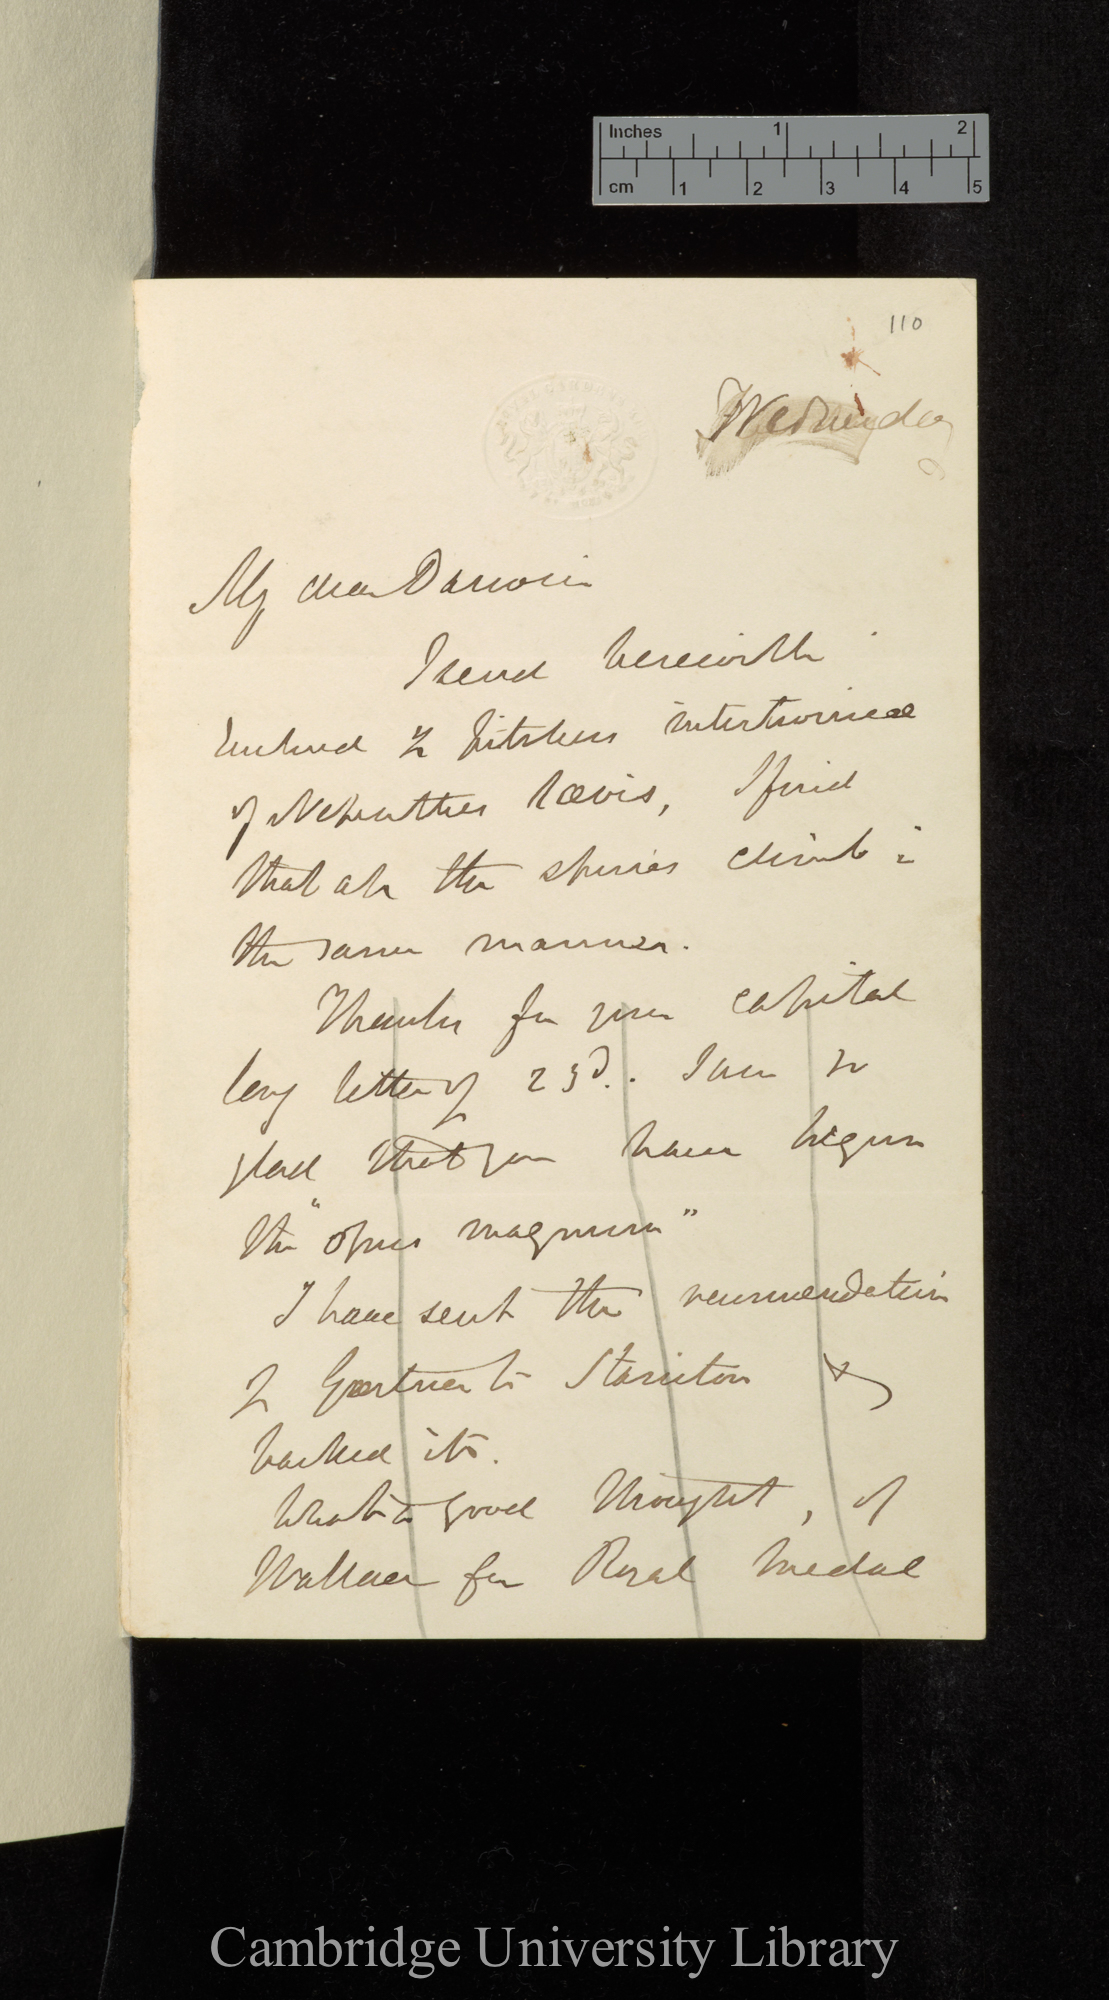 Inches 1 2
cm 1 2 3 4 5
110
Wednesday
My dear Darwin
I send herewith
2 pitchers intertwined
of Nepenthes laevis, I find
that all the species climb in
the same manner.
Thanks for your capital
long letter of 23d.. I am so
glad that you have begun
the "opus magnum"
I have sent the recommendation
of Gaertner to Stainton &
backed it.
What a good thought, of
Wallace for Royal Medal
Cambridge University Library